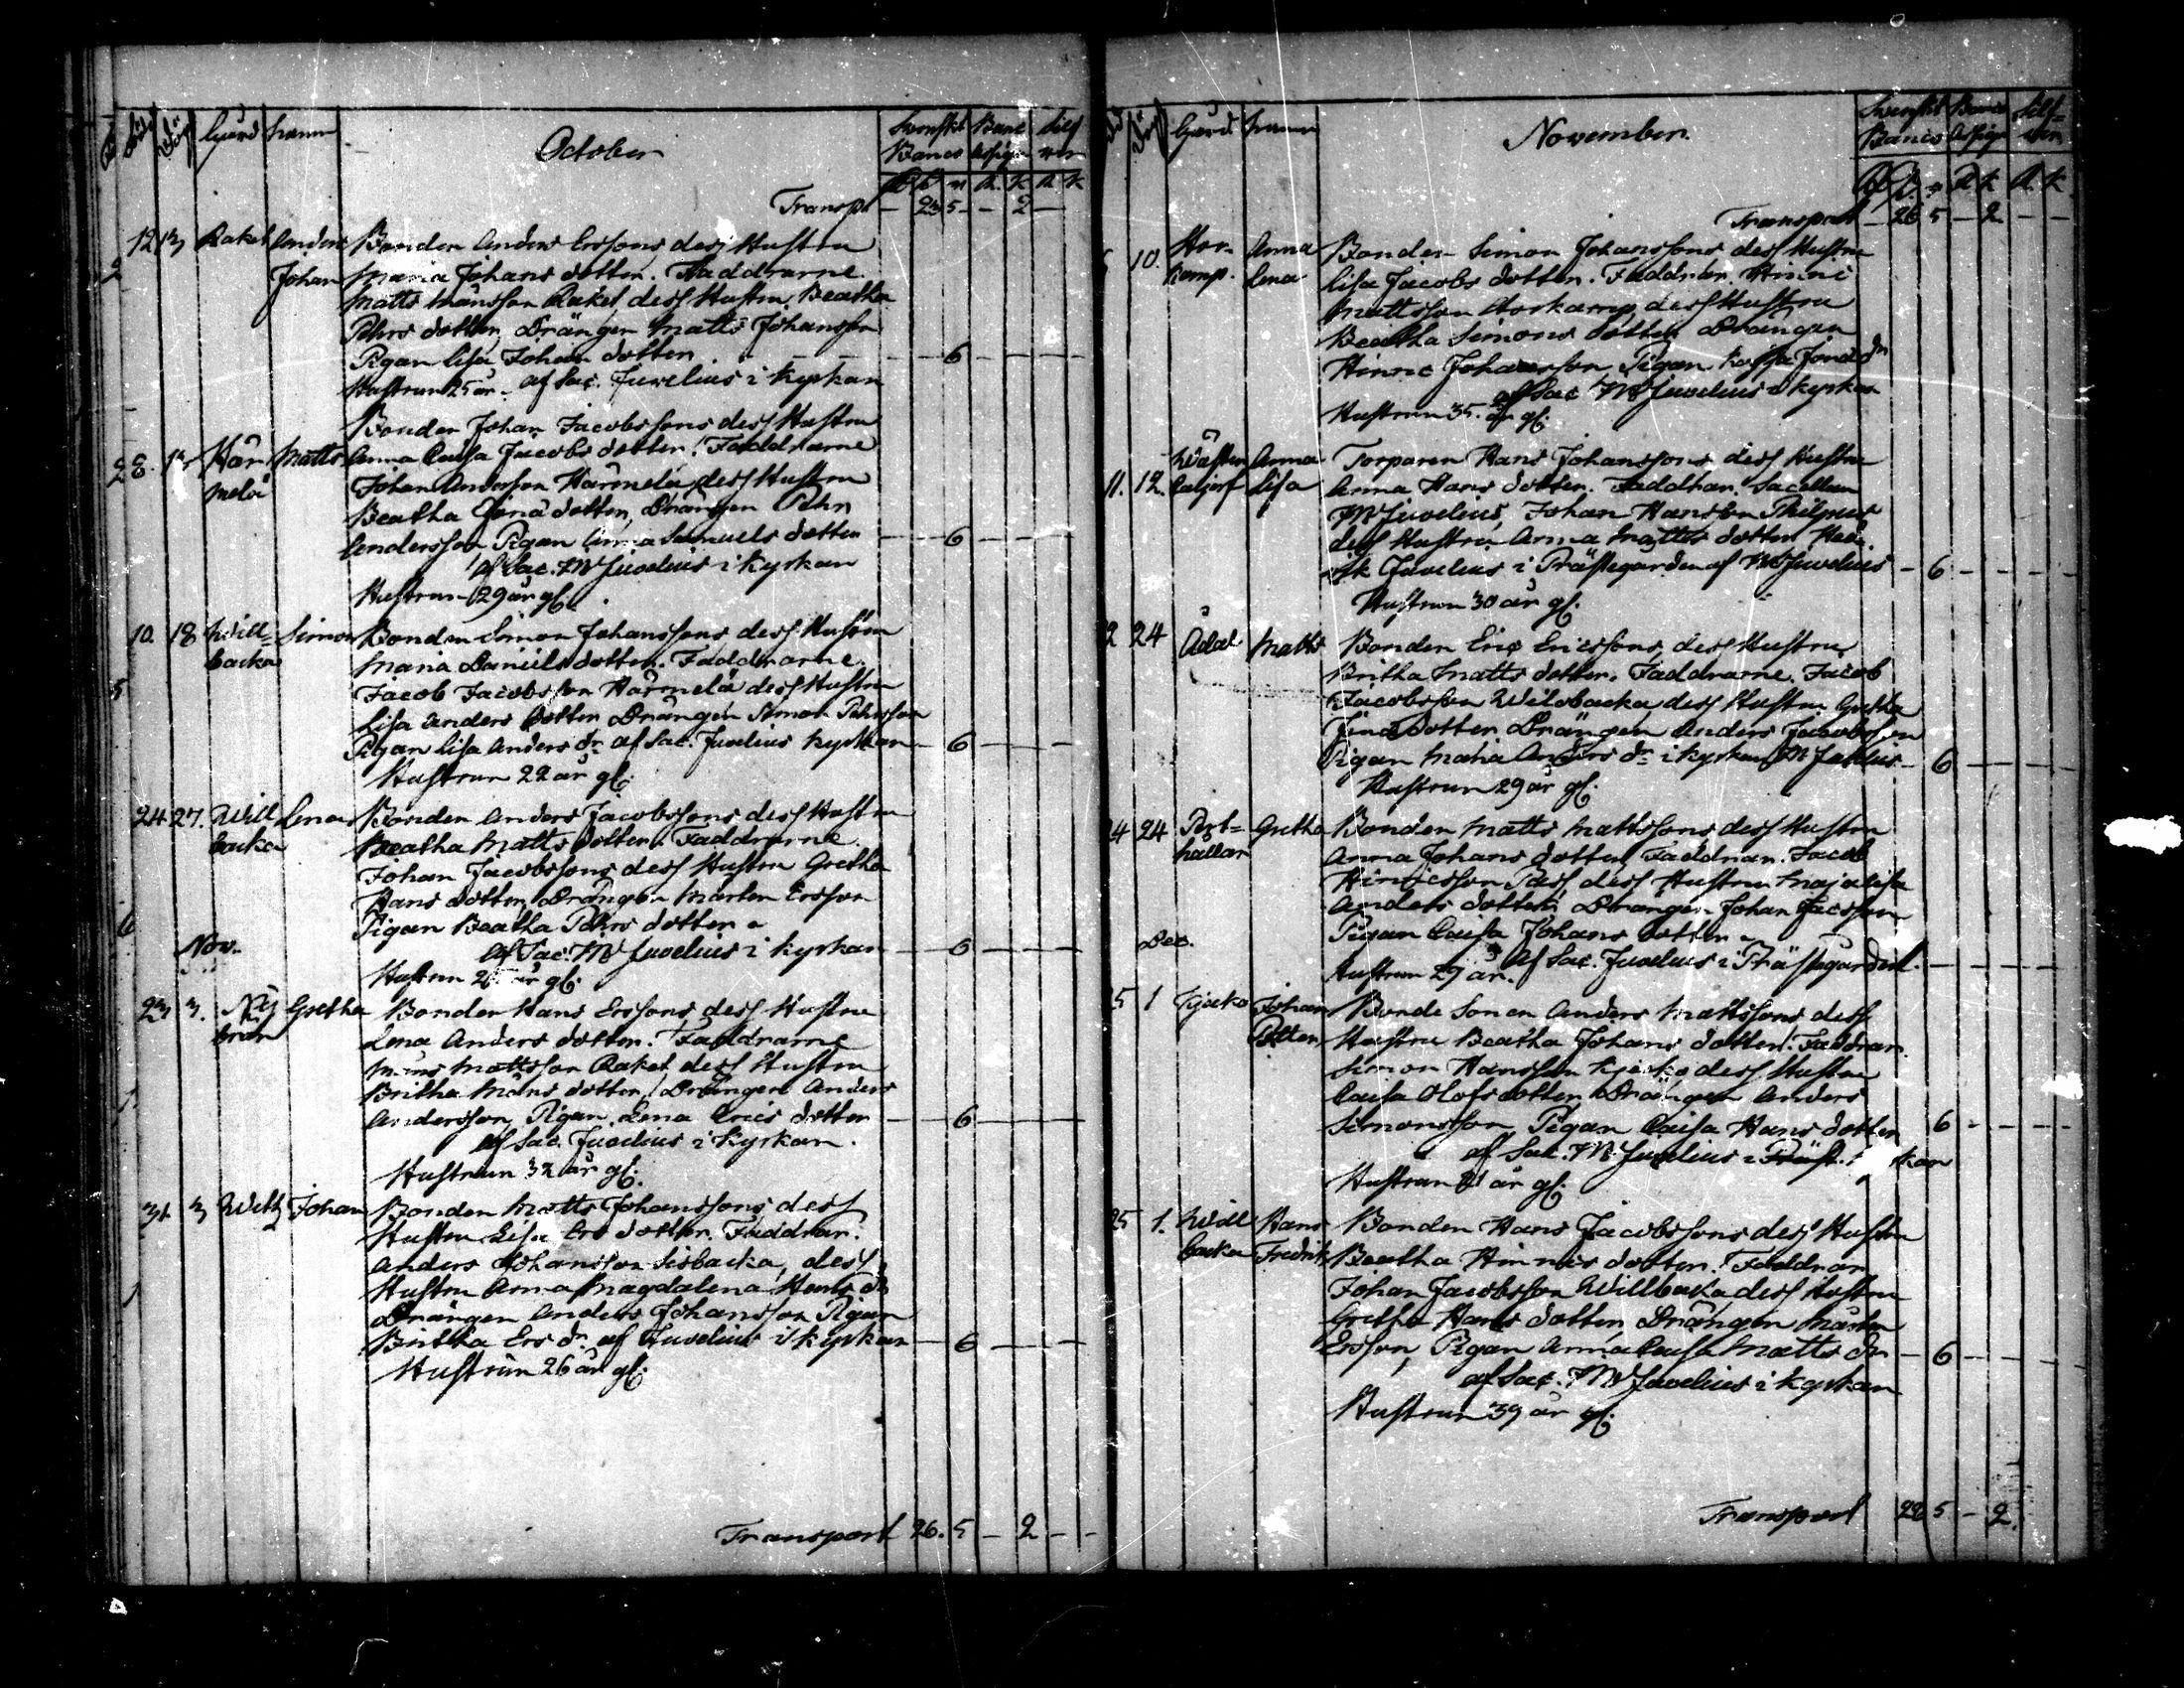 Gård Namn October Svenskt Banco Banc Assign Silfver
Transpt — 23 5 — — 2 —
12 13 Raket Anders Bonden Anders Erssons dess Hustru
Johan Maria Johans dotter. Faddrarne
Matts Månsson Raket dess Hustru Beatha
Pehrs dotter, Drängen Matts Johansson
Pigan Lisa Johans dotter. — 6 — — —
Hustrun 25 år. af Sac. Juvelius i Kyrkan
Bonden Johan Jacobssons dess Hustru
28. Här Matts Anna Caisa Jacobs dotter. Faddrarne
melä Johan Andersson Härmelä dess Hustru
Beatha Jona dotter, Drängen Pehr
Andersson Pigan Anna Samuels dotter — 6 — — —
af Sac. M Juvelius i Kyrkan
Hustrun 29 år gl.
10. 18 Will= Simon Bonden Simon Johanssons dess Hustru
backa Maria Daniels dotter. Faddrarne
Jacob Jacobsson Härmelä dess Hustru
Lisa Anders dotter Drängen Simon Pehrsson
Pigan Lisa Anders dr af Sac. Juvelius Kyrkan — 6 — — —
Hustrun 22 år gl.
24 27. Will Lena Bonden Anders Jacobssons dess Hustru
backa Beatha Matts dotter. Faddrarne
Johan Jacobssons dess Hustru Gretha
Hans dotter, Drängen Mårten Ersson
Pigan Beatha Pehrs dotter
Nov. af Sac. M Juvelius i Kyrkan — 6 — — —
Hustrun år gl.
23 3. Nij Gretha Bonden Hans Erssons dess Hustru
bran Lena Anders dotter. Faddrarne
Måns Mattsson Raket dess Hustru
Britha Måns dotter, Drängen Anders
Andersson, Pigan Lena Erics dotter — 6 — — —
af Sac. Juvelius i Kyrkan.
Hustrun 32 år gl.
31 3 Johan Bonden Matts Johanssons dess
Hustru Lisa Ers dotter. Faddrar.
Anders Johansson Sisbacka, dess
Hustru Anna Magdalena Hans dr
Drängen Anders Johansson Pigan
Britha Ers dr af Juvelius i Kyrkan — 6 — — —
Hustrun 26 år gl.
Transport 26. 5 — 2 — —
Gård Namn November. Svenskt Banco Banco Assign Silfver
Transport — 26 5 — 2 — —
10. Hor= Anna Bonden Simon Johanssons dess Hustru
kamp. Lena Lisa Jacobs dotter. Faddrar. Hinric
Mattsson Horkamp dess Hustru
Beatha Simons dotter Drängen
Hinric Johansson, Pigan Jona dr
af Sac M Juvelius i Kyrkan
Hustrun 35. år gl.
Wäster Anna Torparen Hans Johanssons dess Hustru
11. 12. Lisa Anna Hans dotter. Faddrar. Sacellan
M Juvelius, Johan Hansson
dess Hustru Anna Matts dotter
Juvelius i Prästegården af M Juvelius — 6 — — —
Hustrun 30 år gl.
24 Ådal Matts Bonden Eric Ericssons dess Hustru
Britha Matts dotter. Faddrarne. Jacob
Jacobsson Willobacka dess Hustru Gretha
Jona dotter Drängen Anders Jacobsson
Pigan Maria Anders dr i Kyrkan M Juvelius — 6 — — —
Hustrun 29 år gl.
24 Gretha Bonden Matts Mattssons dess Hustru
hallar Anna Johans dotter, Faddrar. Jacob
Hinricsson Pass dess Hustru Majalisa
Anders dotter Drängen Johan Jacsson
Dec. Pigan Caisa Johans dotter
Hustrun 29 år. af Sac. Juvelius i Prästegården. — — —
1 Johan Bonde Sonen Anders Mattssons dess
Petter Hustru Beatha Johans dotter. Faddrar.
Simon Hansson dess Hustru
Caisa Olofs dotter Drängen Anders
Simonsson Pigan Caisa Hans dotter 6 — — —
af Sac. M. Juvelius i
Hustrun 21 år gl.
25 1. Will Hans Bonden Hans Jacobssons dess Hustru
backa Fredrik Beatha Hinrics dotter. Faddrar
Johan Jacobsson Willbacka dess Hustru
Gretha Hans dotter, Drängen Mårten
Ersson, Pigan Anna Caisa Matts dr — 6 — — —
af Sac. M Juvelius i Kyrkan
Hustrun 39 år gl.
Transport 28 5 — 2.